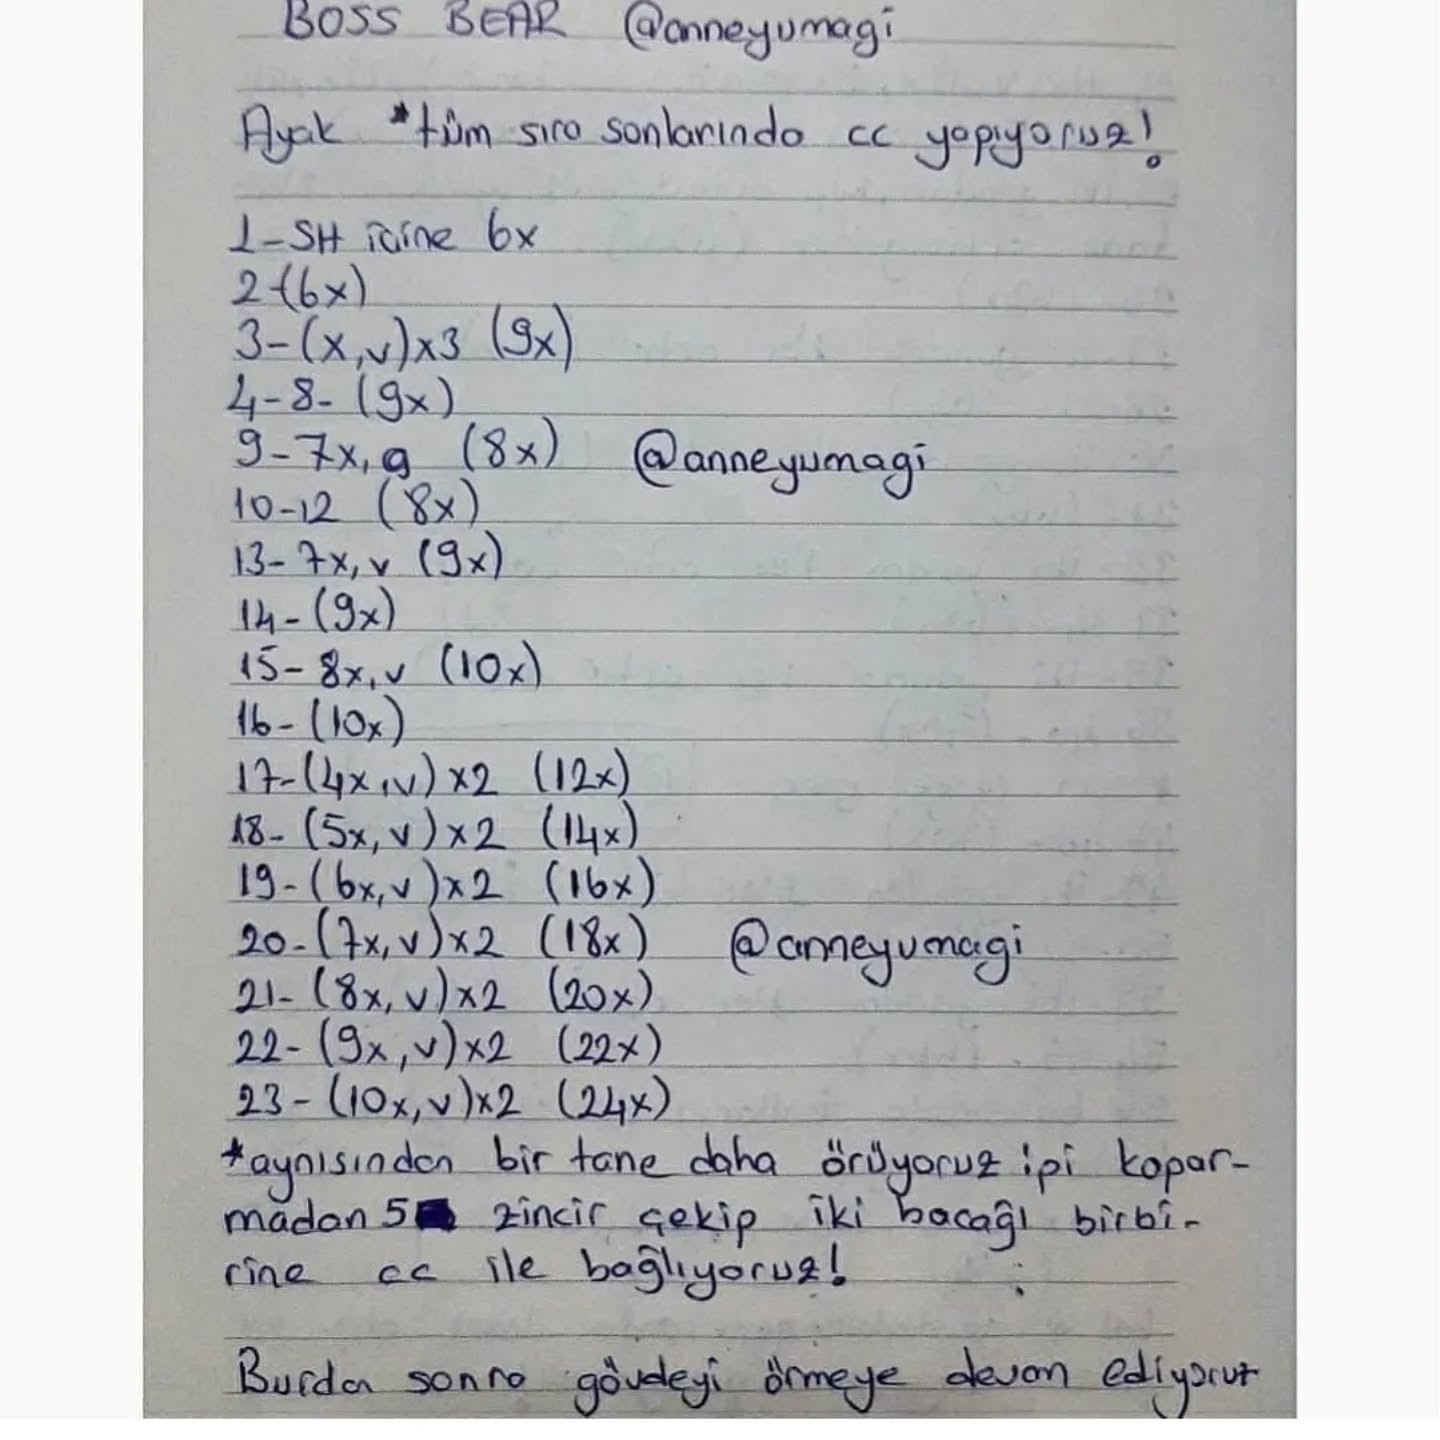 BOSS BEAR @anneyumagi
Ayak *tüm sıra sonlarında cc yapıyoruz!
1-SH içine 6x
2-(6x)
3-(x,v)x3 (9x)
4-8- (9x)
9-7x,g (8x) @anneyumagi
10-12 (8x)
13-7x,v (9x)
14-(9x)
15-8x,v (10x)
16-(10x)
17-(4x,v)x2 (12x)
18-(5x,v)x2 (14x)
19-(6x,v)x2 (16x)
20-(7x,v)x2 (18x) @anneyumagi
21-(8x,v)x2 (20x)
22-(9x,v)x2 (22x)
23-(10x,v)x2 (24x)
*aynısından bir tane daha örüyoruz ipi kopar-
madan 5 zincir çekip iki bacağı birbi-
rine cc ile bağlıyoruz!
Burdan sonra gövdeyi örmeye devam ediyoruz